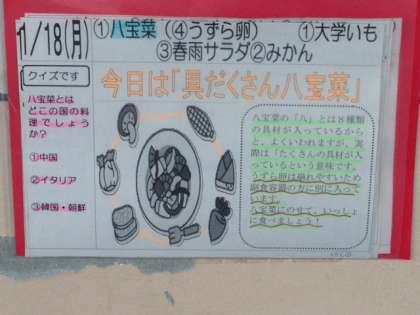 1/18(月)
①八宝菜（④うずら卵） ①大学いも
③春雨サラダ②みかん
クイズです
今日は「具だくさん八宝菜」
八宝菜とは
どこの国の料
理でしょう
か？
①中国
②イタリア
③韓国・朝鮮
八宝菜の「八」とは８種類
の具材が入っているからだ
と、よくいわれますが、実
際は「たくさんの具材が入っ
ているという意味です。
うずら卵は崩れやすいため
副食容器の方に別に入って
います。
八宝菜にのせて、いっしょ
に食べましょう！